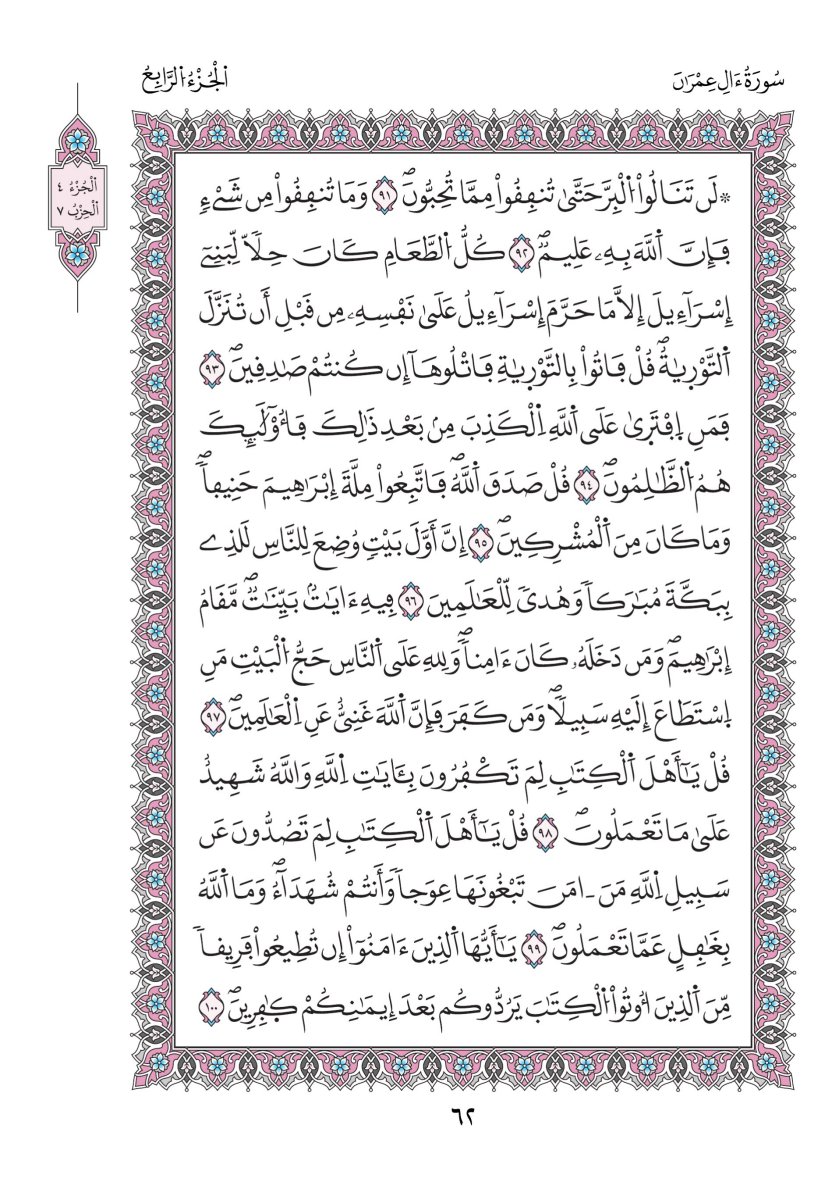 سُورَةُ ءَالِ عِمْرَٰنَ
اَلْجُزْءُ اُلرَّابِعُ
اَلْجُزْءُ ٤
اَلْحِزْبُ ٧
* لَن تَنَالُواْ اُلْبِرَّ حَتَّىٰ تُنفِقُواْ مِمَّا تُحِبُّونَۖ ٩١ وَمَا تُنفِقُواْ مِن شَےْءٖ
فَإِنَّ اَللَّهَ بِهِۦ عَلِيمٞۖ ٩٢ كُلُّ اُلطَّعَامِ كَانَ حِلّاٗ لِّبَنِےٓ
إِسْرَآءِيلَ إِلَّا مَا حَرَّمَ إِسْرَآءِيلُ عَلَىٰ نَفْسِهِۦ مِن قَبْلِ أَن تُنَزَّلَ
اَلتَّوْرَيٰةُۖ قُلْ فَاتُواْ بِالتَّوْرَيٰةِ فَاتْلُوهَآ إِن كُنتُمْ صَٰدِقِينَۖ ٩٣
فَمَنِ اِفْتَرَىٰ عَلَى اَللَّهِ اِلْكَذِبَ مِنۢ بَعْدِ ذَٰلِكَ فَأُوْلَٰٓئِكَ
هُمُ اُلظَّٰلِمُونَۖ ٩٤ قُلْ صَدَقَ اَللَّهُۖ فَاتَّبِعُواْ مِلَّةَ إِبْرَٰهِيمَ حَنِيفاٗۖ
وَمَا كَانَ مِنَ اَلْمُشْرِكِينَۖ ٩٥ إِنَّ أَوَّلَ بَيْتٖ وُضِعَ لِلنَّاسِ لَلذِے
بِبَكَّةَ مُبَٰرَكاٗ وَهُدىٗ لِّلْعَٰلَمِينَ ٩٦ فِيهِ ءَايَٰتُۢ بَيِّنَٰتٞۖ مَّقَامُ
إِبْرَٰهِيمَۖ وَمَن دَخَلَهُۥ كَانَ ءَامِناٗۖ وَلِلهِ عَلَى اَلنَّاسِ حَجُّ اُلْبَيْتِ مَنِ
اِسْتَطَاعَ إِلَيْهِ سَبِيلاٗۖ وَمَن كَفَرَ فَإِنَّ اَللَّهَ غَنِيٌّ عَنِ اِلْعَٰلَمِينَۖ ٩٧
قُلْ يَٰٓأَهْلَ اَلْكِتَٰبِ لِمَ تَكْفُرُونَ بِـَٔايَٰتِ اِللَّهِ وَاللَّهُ شَهِيدٌ
عَلَىٰ مَا تَعْمَلُونَۖ ٩٨ قُلْ يَٰٓأَهْلَ اَلْكِتَٰبِ لِمَ تَصُدُّونَ عَن
سَبِيلِ اِللَّهِ مَنَ اٰمَنَ تَبْغُونَهَا عِوَجاٗ وَأَنتُمْ شُهَدَآءُۖ وَمَا اَللَّهُ
بِغَٰفِلٍ عَمَّا تَعْمَلُونَۖ ٩٩ يَٰٓأَيُّهَا اَلذِينَ ءَامَنُوٓاْ إِن تُطِيعُواْ فَرِيقاٗ
مِّنَ اَلذِينَ أُوتُواْ اُلْكِتَٰبَ يَرُدُّوكُم بَعْدَ إِيمَٰنِكُمْ كَٰفِرِينَۖ ١٠٠
٦٢